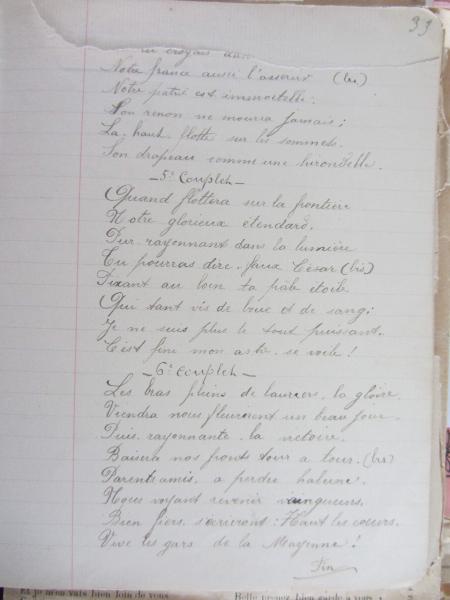 99
tu croyais
Notre france aussi l'asservir (bis)
Notre patrie est immortelle.
Son renon ne mourra jamais;
La-haut flotte sur les sommets.
Son drapeau comme une hirondelle
— 5e Couplet —
Quand flottera sur la frontiere
Notre glorieux étendard,
Pur rayonnant dans la lumière
Tu pourras dire. faux César (bis)
Fixant au loin ta pâle étoile
Qui tant vis de boue et de sang;
Je ne suis plus le tout puissant.
C'est fini mon astre se voile!
— 6e Couplet —
Les bras pleins de lauriers. la gloire.
Viendra nous fleurirent un beau jour.
Puis. rayonnante. la victoire.
Baisera nos fronts tour a tour. (bis)
Parents amis. a perdre haleine.
Nous voyant revenir vainqueurs.
Bien fiers. s'ecrieront: Haut les cœurs.
Vive les gars de la Mayenne!
Fin
Et je m'en vais bien loin de vous